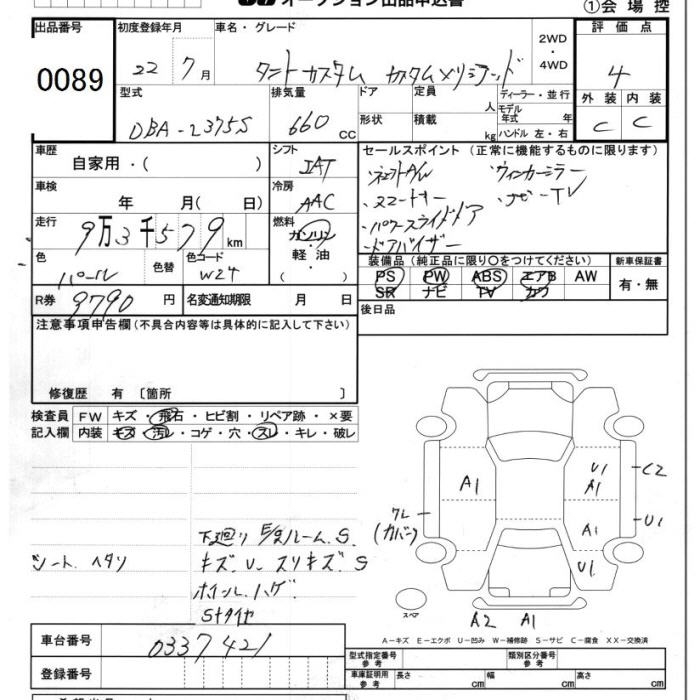 オークション出品申込書
①会場控
出品番号 初度登録年月 車名・グレード 評価点
0089 22 7月 タントカスタム カスタムXリミテッド 2WD・4WD 4
型式 排気量 ドア 定員 人 ディーラー・並行 外装 内装
DBA-L375S 660 cc 形状 積載 kg モデル年式 年 ハンドル 左・右 C C
車歴 シフト セールスポイント (正常に機能するものに限ります)
自家用・( ) IAT ウィンカーミラー
車検 冷房 ・スマートキー ・ナビ・TV
年 月( 日) AAC ・パワースライドドア
走行 燃料 ・ドアバイザー
9万3千579km ガソリン・軽油・( )
色 色替 色コード 装備品 (純正品に限り○をつけてください) 新車保証書
パール W24 PS PW ABS エアB AW 有・無
SR ナビ TV カワ
R券 9790円 名変通知期限 月 日 後日品
注意事項申告欄 (不具合内容等は具体的に記入して下さい)
修復歴 有 〔箇所 〕
検査員 FW キズ・飛石・ヒビ割・リペア跡・×要
記入欄 内装 キズ・汚レ・コゲ・穴・スレ・キレ・破レ
U1 C2
A1 A1
ワレ(カバー) A1 U1
下廻り E/gルーム.S.
シート ヘタリ キズ.U.スリキズ.S
U1
ホイールハゲ.
Sタイヤ
スペア
A2 A1
A-キズ E-エクボ U-凹み W-補修跡 S-サビ C-腐食 XX-交換済
車台番号 0337421
型式指定番号 参考 類別区分番号 参考
登録番号 車庫証明用 参考 長さ cm 幅 cm 高さ cm